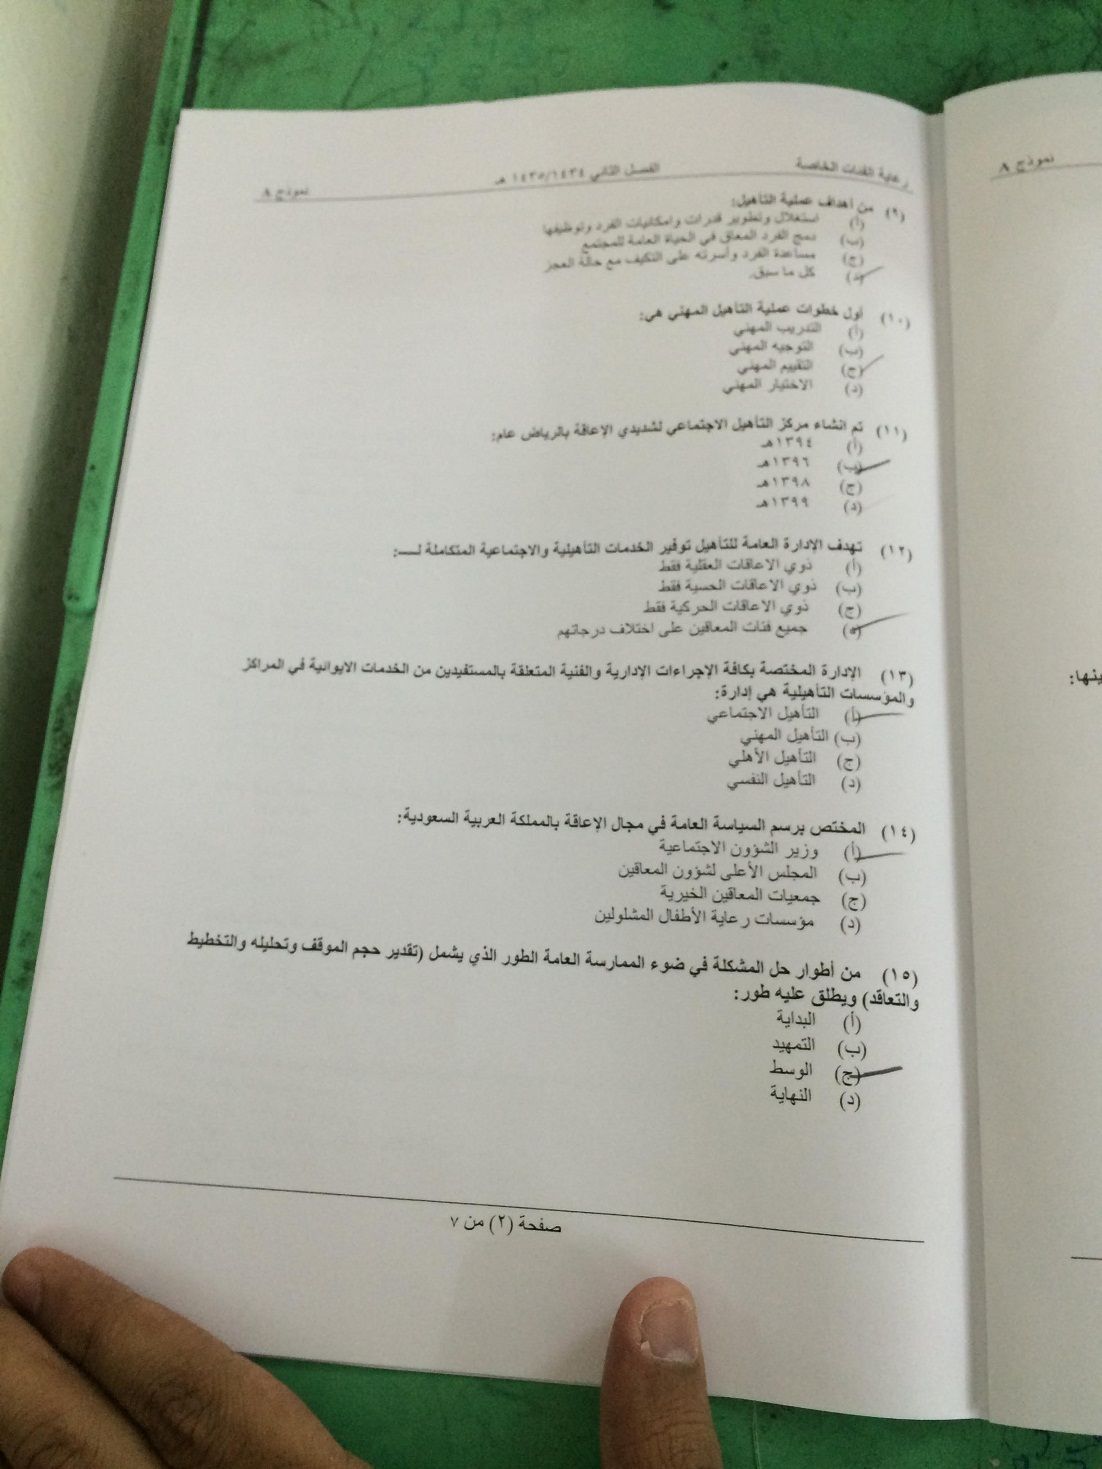 رعاية الفئات الخاصة الفصل الثاني ١٤٣٥/١٤٣٤ هـ نموذج A
(٩) من أهداف عملية التأهيل:
(أ) استغلال وتطوير قدرات وامكانيات الفرد وتوظيفها
(ب) دمج الفرد المعاق في الحياة العامة للمجتمع
(ج) مساعدة الفرد وأسرته على التكيف مع حالة العجز
(د) كل ما سبق.
(١٠) أول خطوات عملية التأهيل المهني هي:
(أ) التدريب المهني
(ب) التوجيه المهني
(ج) التقييم المهني
(د) الاختيار المهني
(١١) تم انشاء مركز التأهيل الاجتماعي لشديدي الإعاقة بالرياض عام:
(أ) ١٣٩٤هـ
(ب) ١٣٩٦هـ
(ج) ١٣٩٨هـ
(د) ١٣٩٩هـ
(١٢) تهدف الإدارة العامة للتأهيل توفير الخدمات التأهيلية والاجتماعية المتكاملة لـــ:
(أ) ذوي الاعاقات العقلية فقط
(ب) ذوي الاعاقات الحسية فقط
(ج) ذوي الاعاقات الحركية فقط
(د) جميع فئات المعاقين على اختلاف درجاتهم
(١٣) الإدارة المختصة بكافة الإجراءات الإدارية والفنية المتعلقة بالمستفيدين من الخدمات الايوائية في المراكز
والمؤسسات التأهيلية هي إدارة:
(أ) التأهيل الاجتماعي
(ب) التأهيل المهني
(ج) التأهيل الأهلي
(د) التأهيل النفسي
(١٤) المختص برسم السياسة العامة في مجال الإعاقة بالمملكة العربية السعودية:
(أ) وزير الشؤون الاجتماعية
(ب) المجلس الأعلى لشؤون المعاقين
(ج) جمعيات المعاقين الخيرية
(د) مؤسسات رعاية الأطفال المشلولين
(١٥) من أطوار حل المشكلة في ضوء الممارسة العامة الطور الذي يشمل (تقدير حجم الموقف وتحليله والتخطيط
والتعاقد) ويطلق عليه طور:
(أ) البداية
(ب) التمهيد
(ج) الوسط
(د) النهاية
صفحة (٢) من ٧
نموذج A